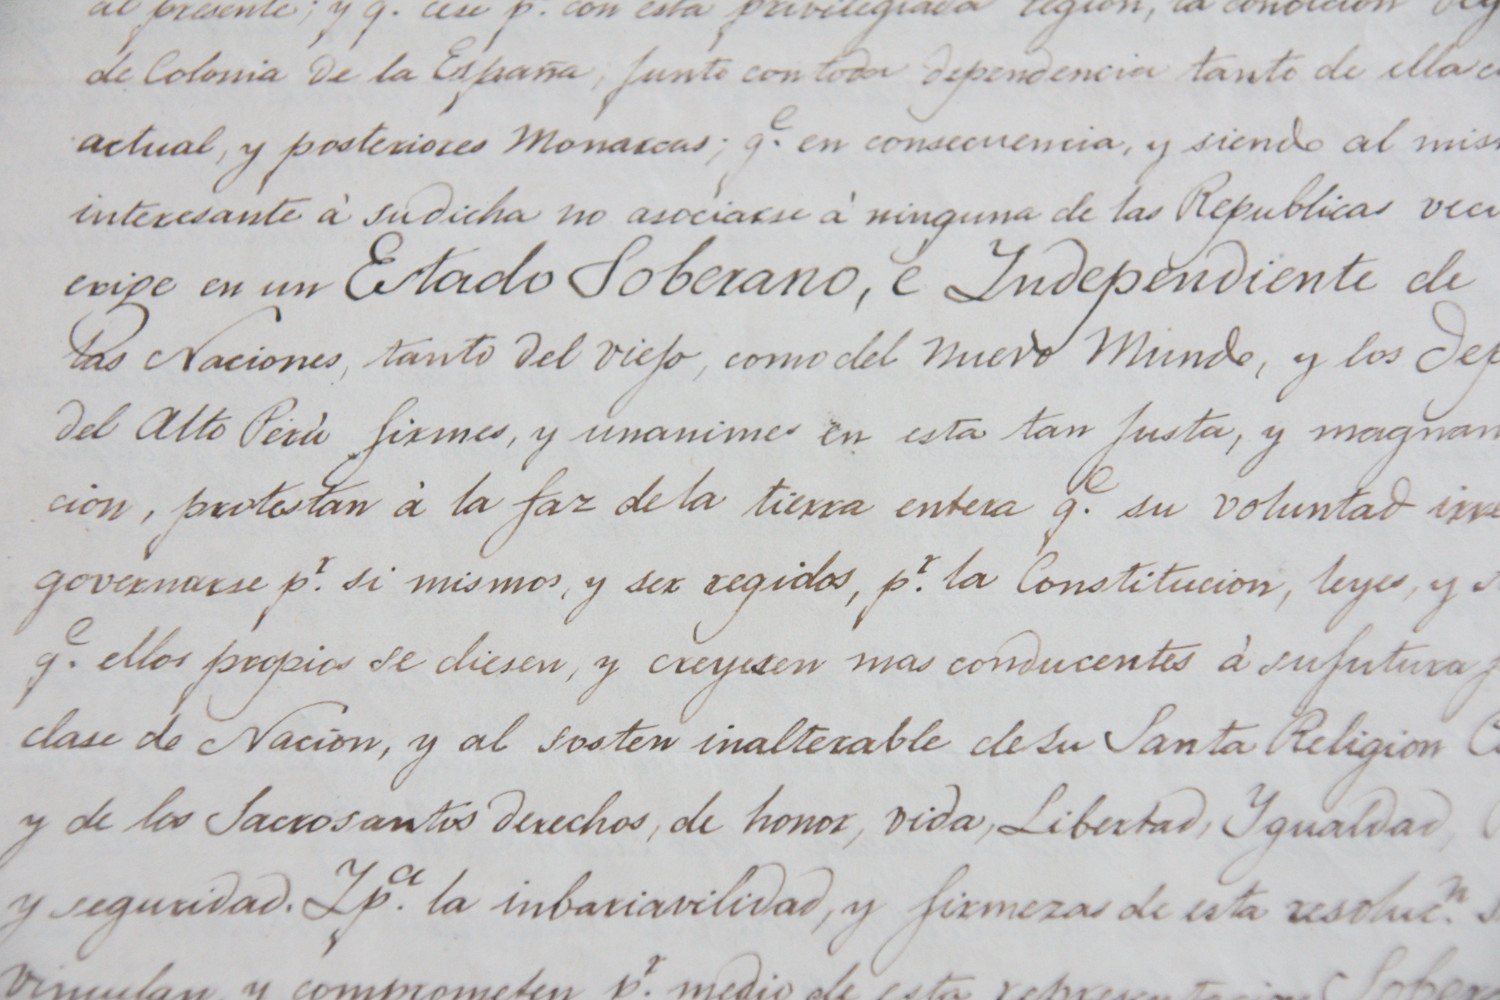 al presente; y q.e cese p.r con esta privilegiada region, la condicion
de Colonia de la España, junto con toda dependencia tanto de ella
actual, y posteriores Monarcas; q.e en consecuencia, y siendo al mis
interesante á su dicha no asociarse á ninguna de las Republicas veci
erige en un Estado Soberano, é Independiente de
las Naciones, tanto del viejo, como del nuevo Mundo, y los Dep
del Alto Perú firmes, y unanimes en esta tan justa, y magnan
cion, protestan á la faz de la tierra entera q.e su voluntad irre
governarse p.r si mismos, y ser regidos, p.r la Constitucion, leyes, y
q.e ellos propios se diesen, y creyesen mas conducentes á su futura
clase de Nacion, y al sosten inalterable de su Santa Religion Ca
y de los Sacrosantos derechos, de honor, vida, Libertad, Ygualdad,
y seguridad. Y p.a la inbariavilidad, y firmezas de esta resoluc.n
vinculan, y comprometen p.r medio de esta representacion Sober